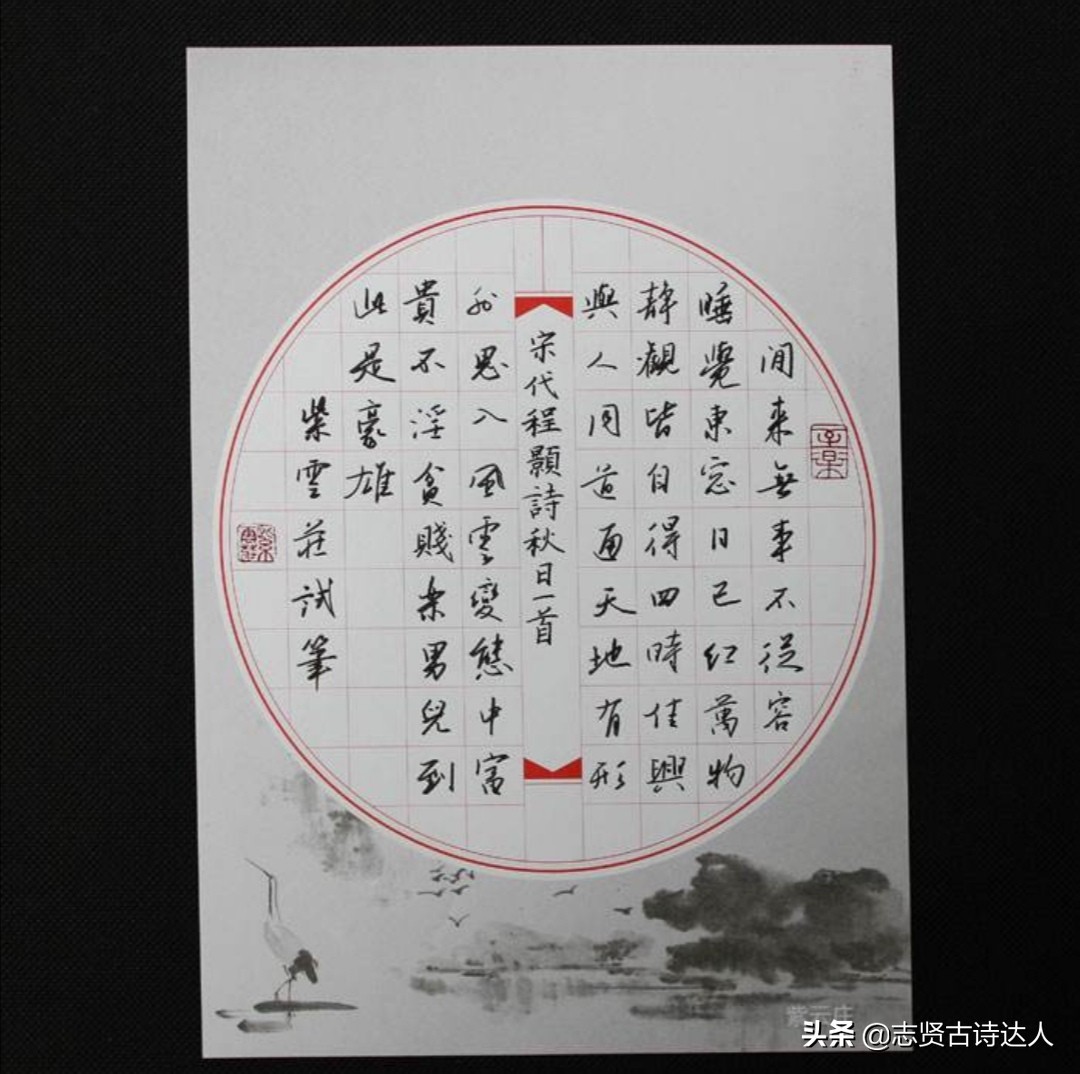 閒来無事不從容
睡覺東窓日已红萬物
静觀皆自得四時佳興
與人同道通天地有形
宋代程顥詩秋日一首
外思入風雲變態中富
貴不淫貧賤楽男兒到
此是豪雄
紫雲莊試筆
紫云庄
头条 @志贤古诗达人